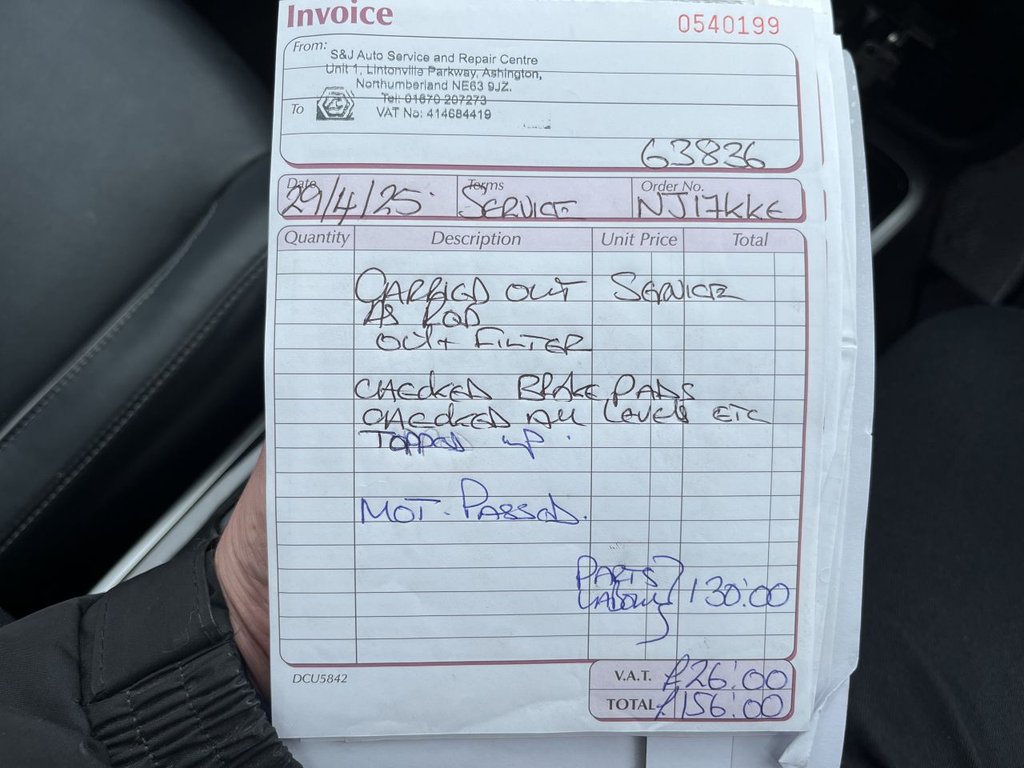 Invoice
0540199
From:
S&J Auto Service and Repair Centre
Unit 1, Lintonville Parkway, Ashington,
Northumberland NE63 9JZ.
Tel: 01670 207273
To
VAT No: 414684419
63836
Date Terms Order No.
29/4/25 SERVICE NJ17KKE
Quantity Description Unit Price Total
CARRIED OUT SERVICE
AS RQD
OIL + FILTER
CHECKED BRAKE PADS
CHECKED ALL LEVELS ETC
TOPPED UP.
MOT. PASSED.
PARTS
LABOUR } 130:00
DCU5842
V.A.T. £26:00
TOTAL £156:00